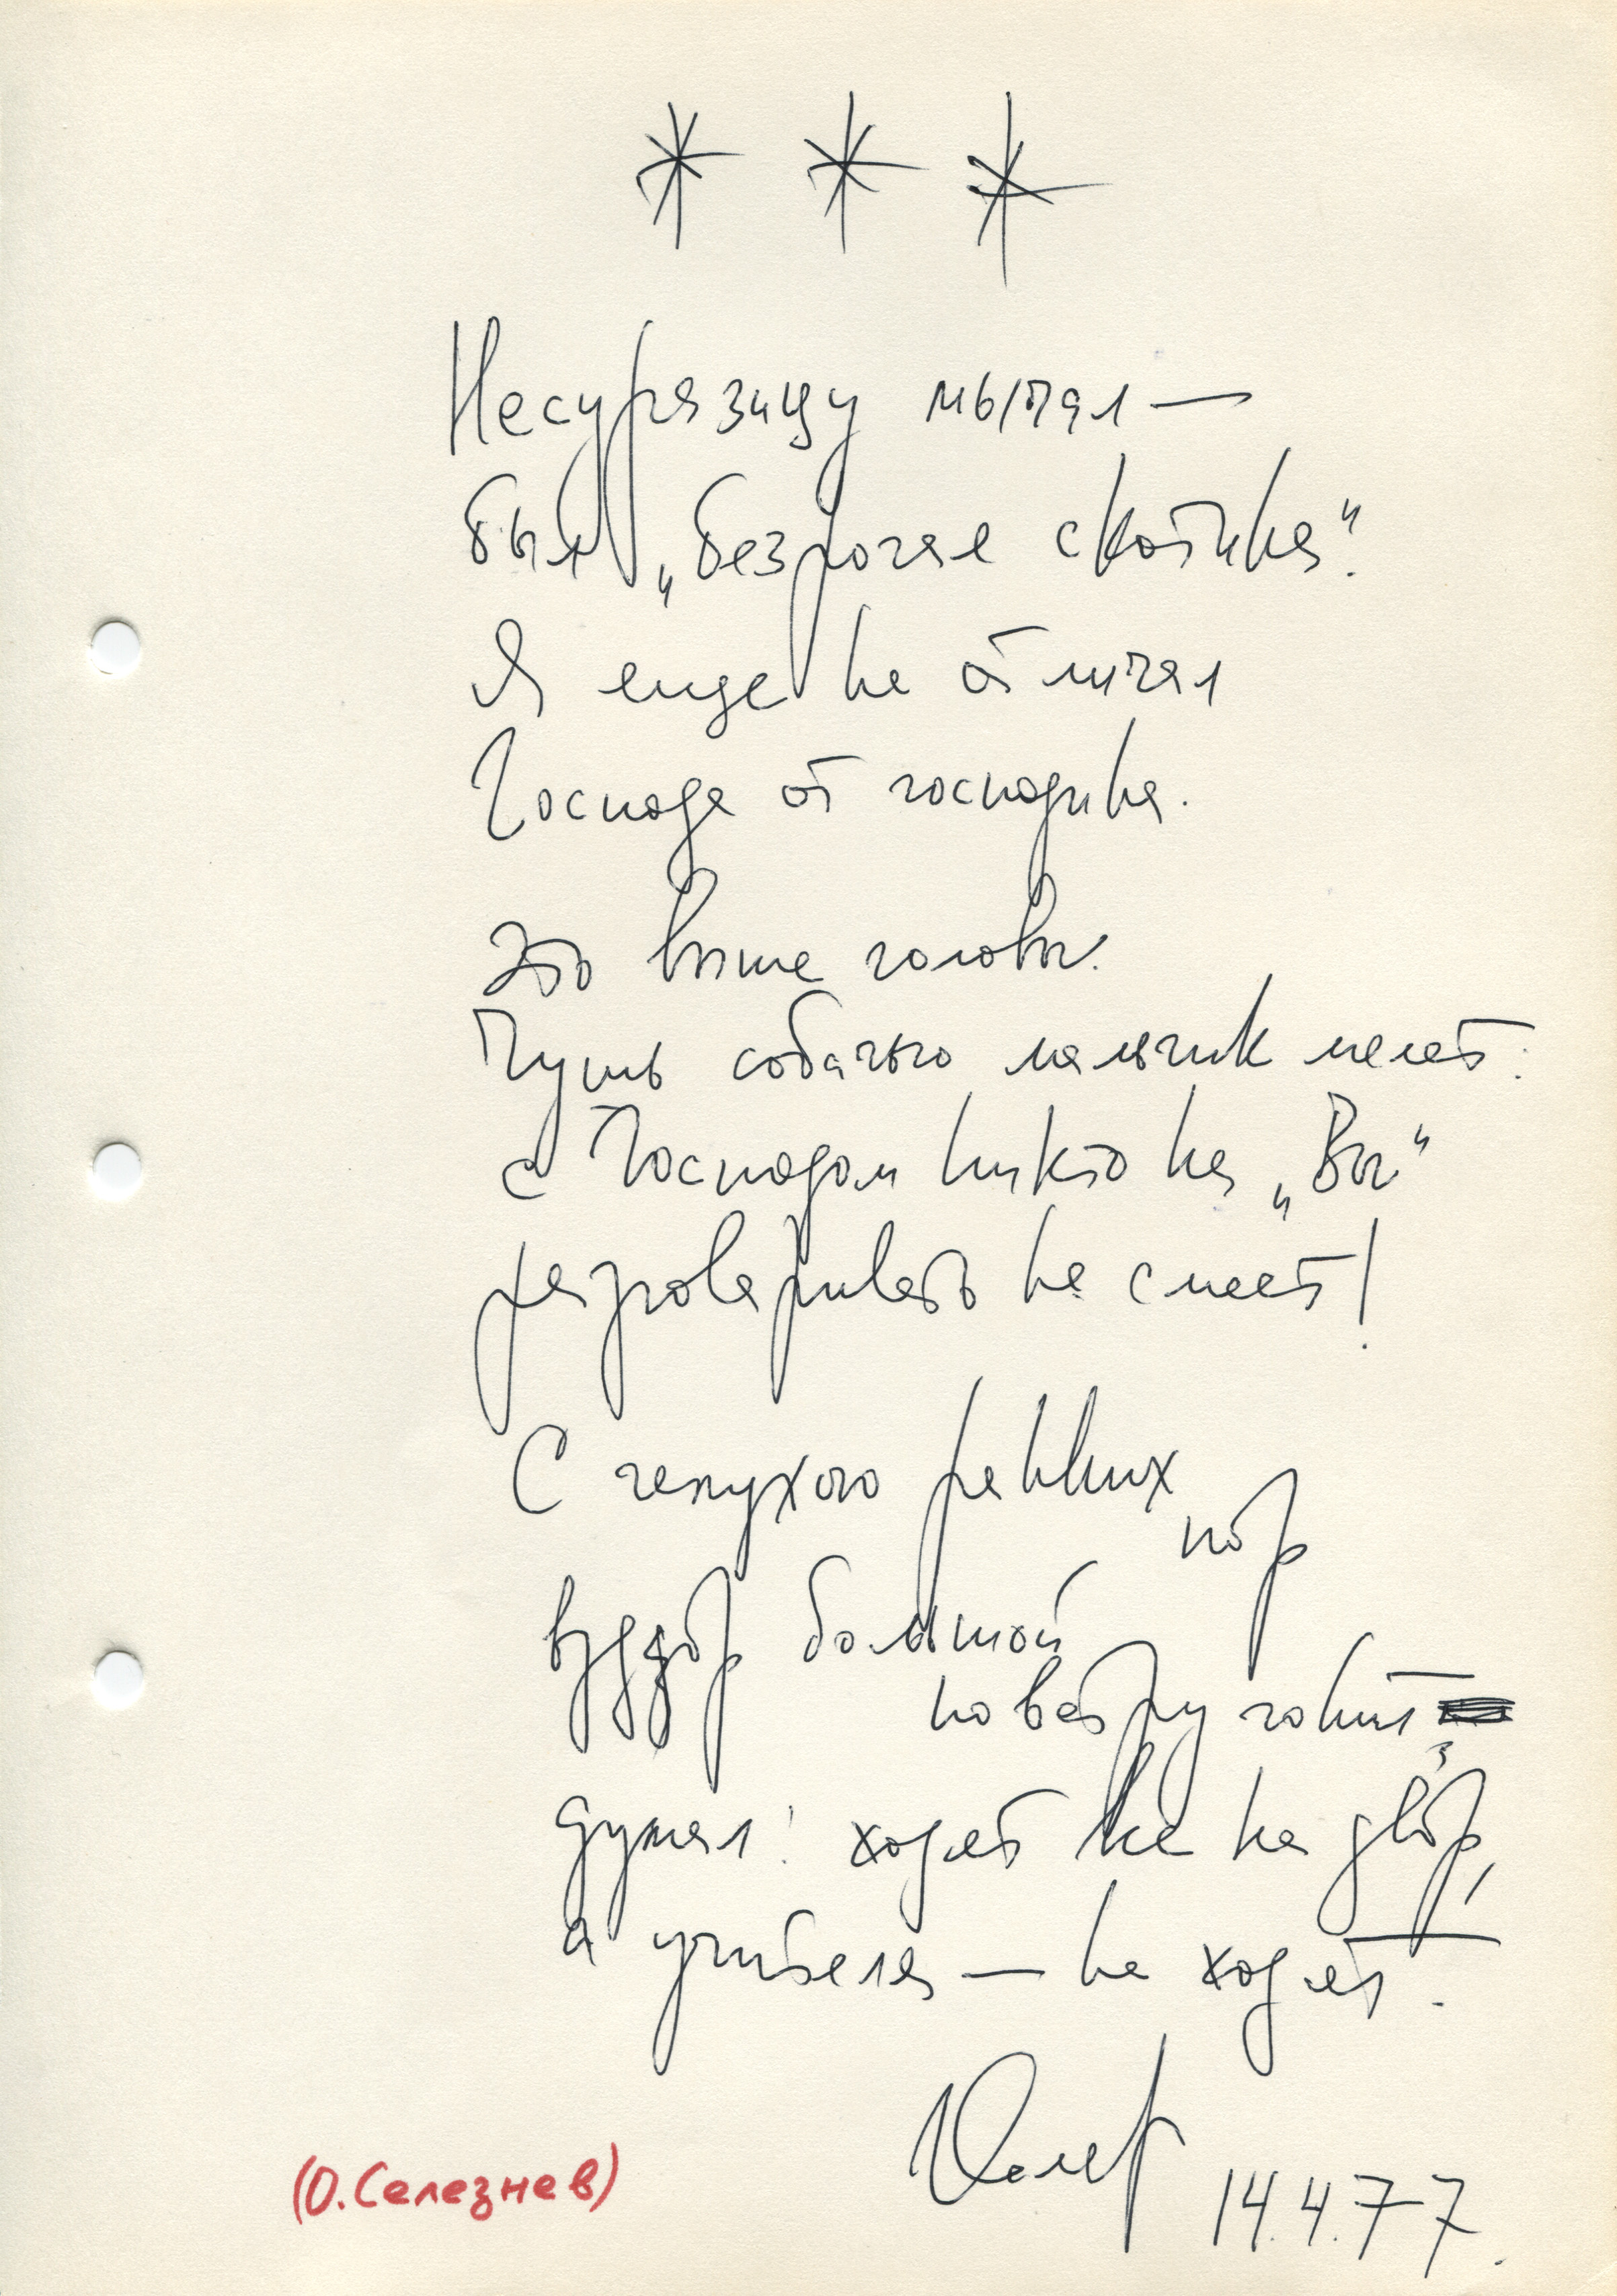 * * *
Несуразицу мычал —
был „безрогая скотинка“.
Я еще не отличал
Господа от господина.
Это выше головы.
Чушь собачью мальчик мелет:
с Господом никто на „Вы“
разговаривать не смеет!
С чепухою ранних
пор
вздор большой
по ветру гонит
думал: ходят же на двор,
а учителя — не ходят.
14.4.77.
(О. Селезнев)